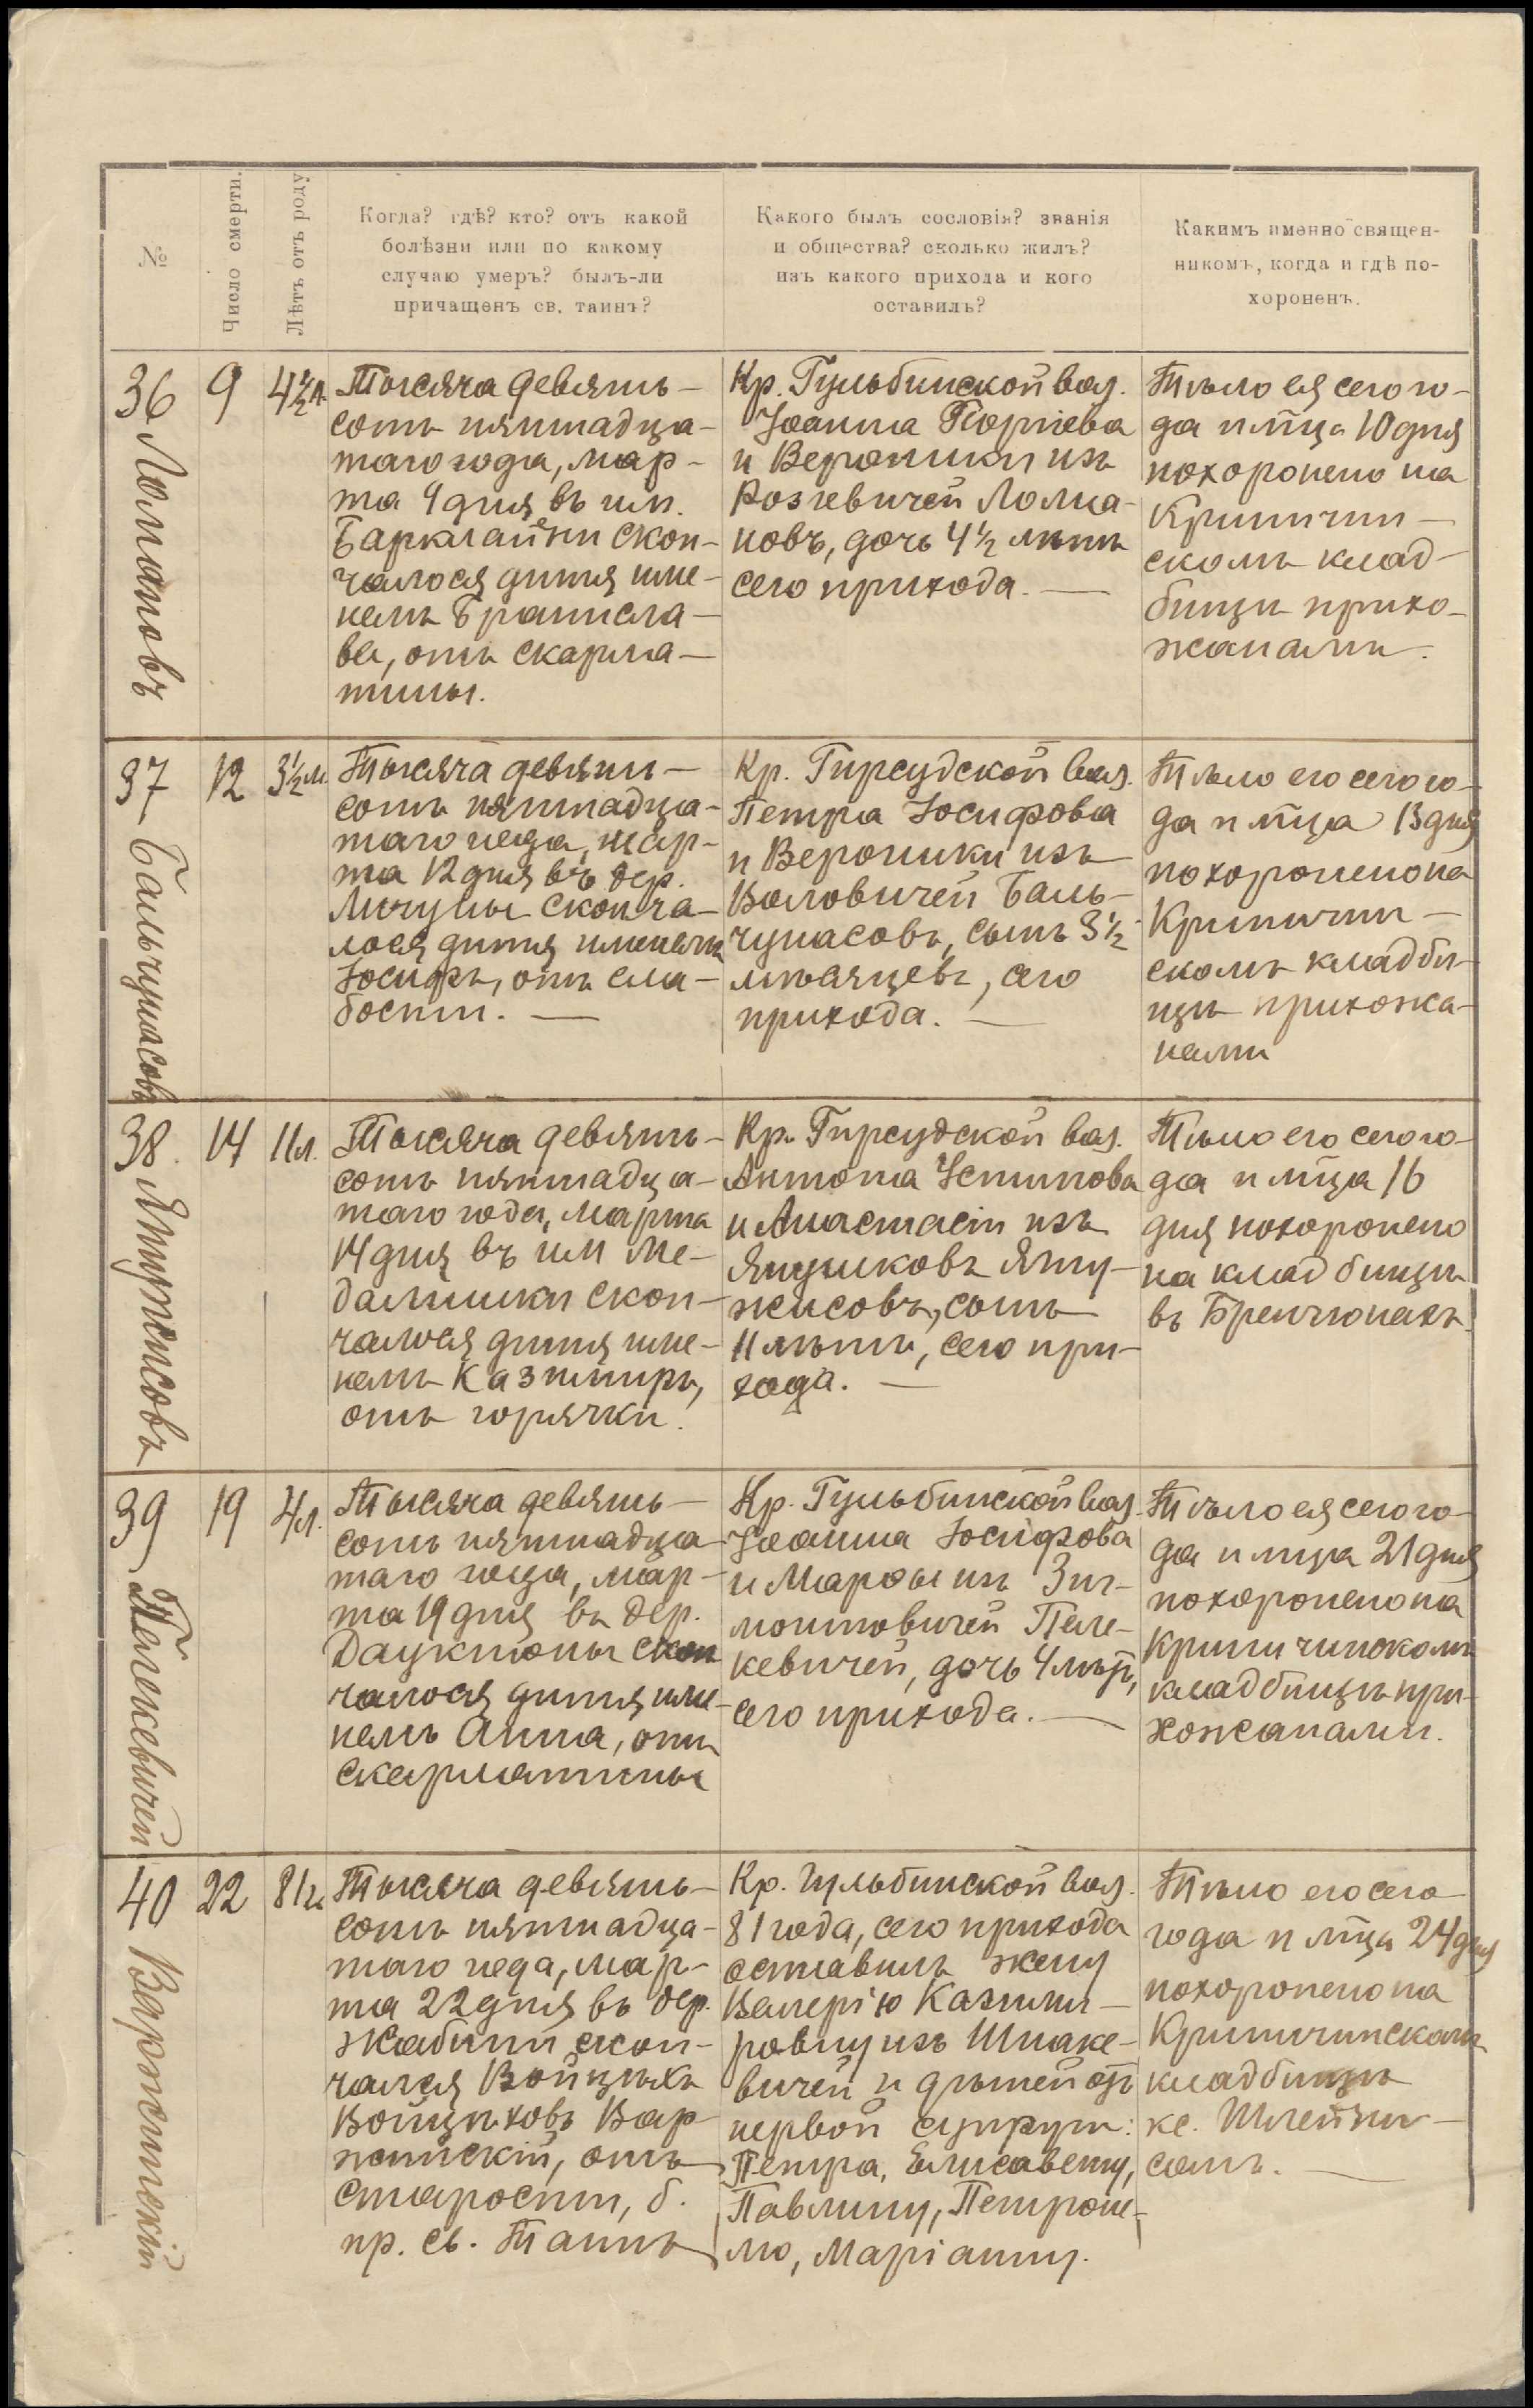 №
Число смерти.
Лѣтъ отъ роду
Когда? гдѣ? кто? отъ какой
болѣзни или по какому
случаю умеръ? былъ-ли
причащенъ св. таинъ?
Какого былъ сословія? званія
и общества? сколько жилъ?
изъ какого прихода и кого
оставилъ?
Какимъ именно священ-
никомъ, когда и гдѣ по-
хороненъ.
36
Ломановъ
9
4½ л.
Тысяча девять-
сотъ пятнадца-
таго года, мар-
та 9 дня въ им.
Барклайни скон-
чалося дитя име-
немъ Бранисла-
ва, отъ скарла-
тины.
Кр. Гульбинской вол.
Іоанна
и Вероники изъ
Розгевичей Лома-
новъ, дочь 4½ лѣтъ
сего прихода. —
Тѣло ея сего го-
да и мца 10 дня
похоронено на
Криничин-
скомъ клад-
бищѣ прихо-
жанами.
37
Бальчунасовъ
12
3½ м.
Тысяча девять-
сотъ пятнадца-
таго года, мар-
та 12 дня въ дер.
Личуны сконча-
лося дитя именемъ
Іосифъ, отъ сла-
бости. —
Кр. Гирсудской вол.
Петра Іосифова
и Вероники изъ
Воловичей Баль-
чунасовъ, сынъ 3½
мѣсяцевъ, сего
прихода. —
Тѣло его сего го-
да и мца 13 дня
похоронено на
Криничин-
скомъ кладби-
щѣ прихожа-
нами
38.
Янужисовъ
14
11 л.
Тысяча девять-
сотъ пятнадца-
таго года, марта
14 дня въ им Ме-
далишки скон-
чалося дитя име-
немъ Казимиръ,
отъ горячки.
Кр. Гирсудской вол.
Антона Устинова
и Анастасіи изъ
Янушковъ Яну-
жисовъ, сынъ
11 лѣтъ, сего при-
хода. —
Тѣло его сего го-
да и мца 16
дня похоронено
на кладбищѣ
въ Бренчюнахъ.
39
Пелекевичей
19
4 л.
Тысяча девять-
сотъ пятнадца-
таго года, мар-
та 19 дня въ дер.
Даукшюны скон
чалося дитя име-
немъ Анна, отъ
скарлатины
Кр. Гульбинской вол.
Іоанна Іосифова
и Марѳы изъ Зиг-
монтовичей Пеле-
кевичей, дочь 4 лѣтъ,
сего прихода. —
Тѣло ея сего го-
да и мца 21 дня
похоронено на
Криничинскомъ
кладбищѣ при-
хожанами.
40
22
81 л.
Тысяча девять-
сотъ пятнадца-
таго года, мар-
та 22 дня въ дер.
Жабини скон-
чался Войцѣхъ
Войцѣховъ Вар-
жинскій, отъ
старости, б.
пр. св. Таинъ
Кр. Гульбинской вол.
81 года, сего прихода
оставилъ жену
Валерію Казими-
ровну изъ Шпаке-
вичей и дѣтей отъ
первой супруги:
Петра, Елисавету,
Павлину, Петроне-
лю, Маріанну.
Тѣло его сего
года и мца 24 дня
похоронено на
Криничинскомъ
кладбищѣ
кс. Шлейни-
сомъ. —